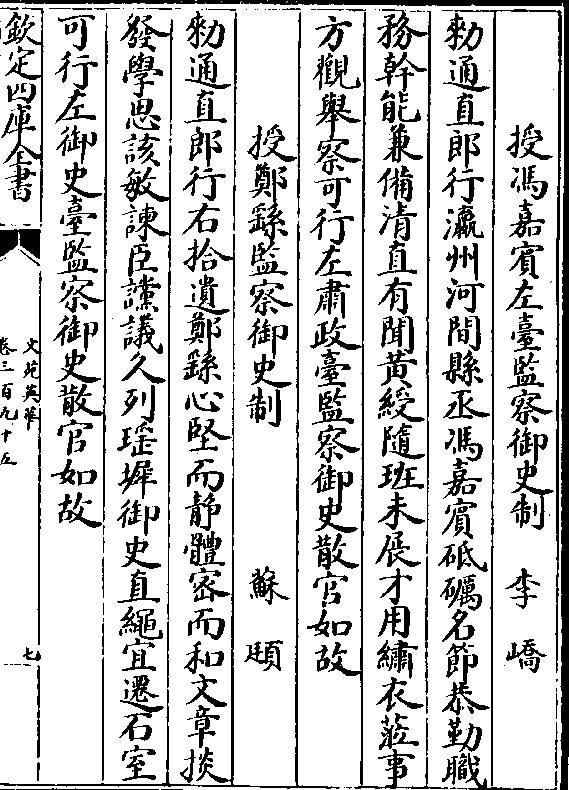 授馮嘉賓左臺監察御史制　李嶠
勑通直郎行瀛州河間縣丞馮嘉賓砥礪名節恭勤職
務幹能兼備清直有聞黃綬隨班未展才用繡衣蒞事
方觀舉察可行左肅政臺監察御史散官如故
授鄭繇監察御史制　蘇頲
勑通直郎行右拾遺鄭繇心堅而静體密而和文章掞
發學思該敏諫臣讜議久列瑶墀御史直繩宜遷石室
可行左御史臺監察御史散官如故
欽定四庫全書
文苑英華
卷三百九十五
七